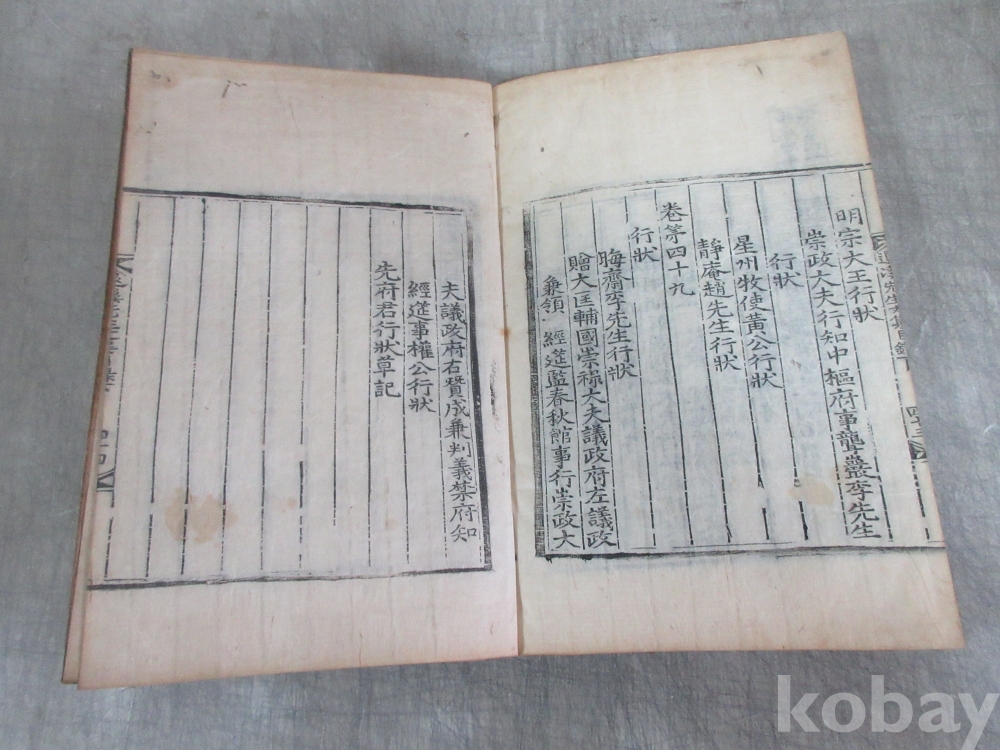 明宗大王行狀
崇政大夫行知中樞府事聾巖李先生
行狀
星州牧使黃公行狀
靜庵趙先生行狀
卷第四十九
行狀
晦齋李先生行狀
贈大匡輔國崇祿大夫議政府左議政
兼領 經筵監春秋館事行崇政大
夫議政府右贊成兼判義禁府知
經筵事權公行狀
先府君行狀草記
kobay